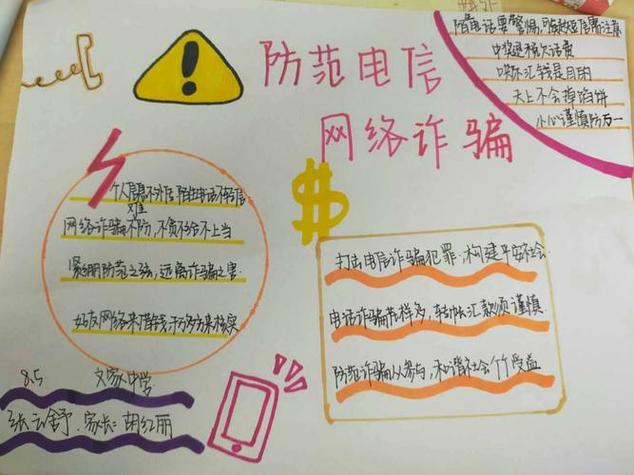 防范电信
网络诈骗
陌电话要警惕,可疑短信需注意
中奖退税欠话费
哄你汇钱是目的
天上不会掉馅饼
小心谨慎防万一
个人信息不外传 陌生电话不轻信
网络诈骗不难防,不贪不给不上当
紧绷防范之弦,远离诈骗之害
好友网络来借钱,千方多方来核实
打击电信诈骗犯罪,构建平安社会
电话诈骗花样多,转帐汇款须谨慎
防范诈骗人人参与,和谐社会个个受益
8.5 文家中学
张云舒.家长:胡红丽